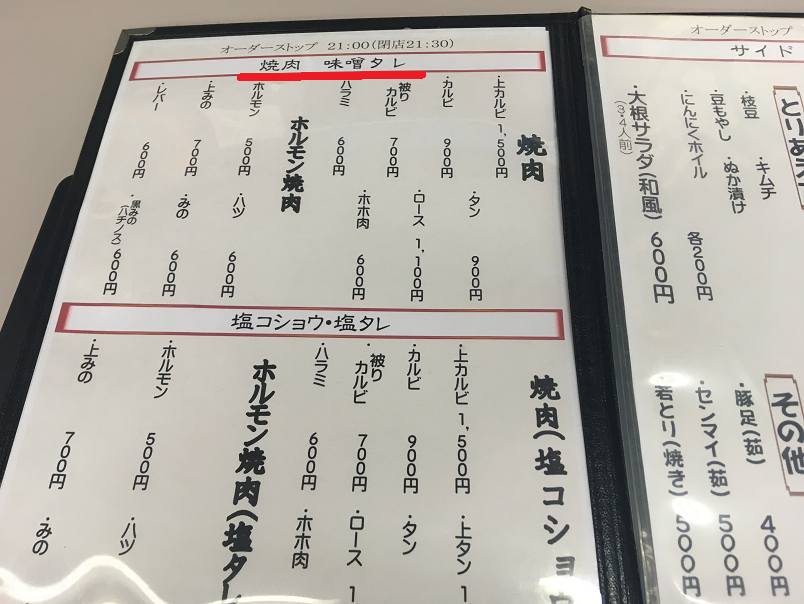 オーダーストップ 21:00(閉店21:30)
焼肉 味噌タレ
焼肉
・上カルビ 1,500円
・カルビ 900円
・被りカルビ 700円
・ハラミ 600円
・タン 900円
・ロース 1,100円
・ホホ肉 600円
ホルモン焼肉
・ホルモン 500円
・上みの 700円
・レバー 600円
・ハツ 600円
・みの 600円
・黒みの(ハチノス) 600円
塩コショウ・塩タレ
焼肉(塩コショウ
・上カルビ 1,500円
・カルビ 900円
・被りカルビ 700円
・ハラミ 600円
・上タン 1
・タン
・ロース 1
・ホホ肉
ホルモン焼肉(塩タレ
・ホルモン 500円
・上みの 700円
・ハツ
・みの
オーダーストップ
サイド
とりあえ
・枝豆
・キムチ
・豆もやし
・ぬか漬け
・にんにくホイル
各200円
・大根サラダ(和風) 600円
(3・4人前)
その他
・豚足(茹) 400円
・センマイ(茹) 500円
・若とり(焼き) 500円